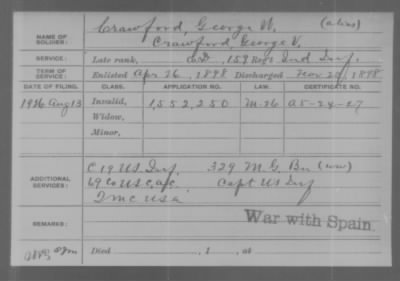 NAME OF SOLDIER: Crawford, George W. (alias)
Crawford, George V.
SERVICE: Late rank, Co D, 159 Regt Ind Inf.
TERM OF SERVICE: Enlisted Apr 26, 1898 Discharged Nov 23, 1898
DATE OF FILING. CLASS. APPLICATION NO. LAW. CERTIFICATE NO.
1926 Aug 13 Invalid, 1,552,250 M-26 A5-24-27
Widow,
Minor,
ADDITIONAL SERVICES: C 19 U.S. Inf. 329 M. G. Bn (WW)
69 Co U.S.C.A.C. Capt US Inf
Q M C U.S.A
REMARKS: War with Spain.
Died , 1 , at